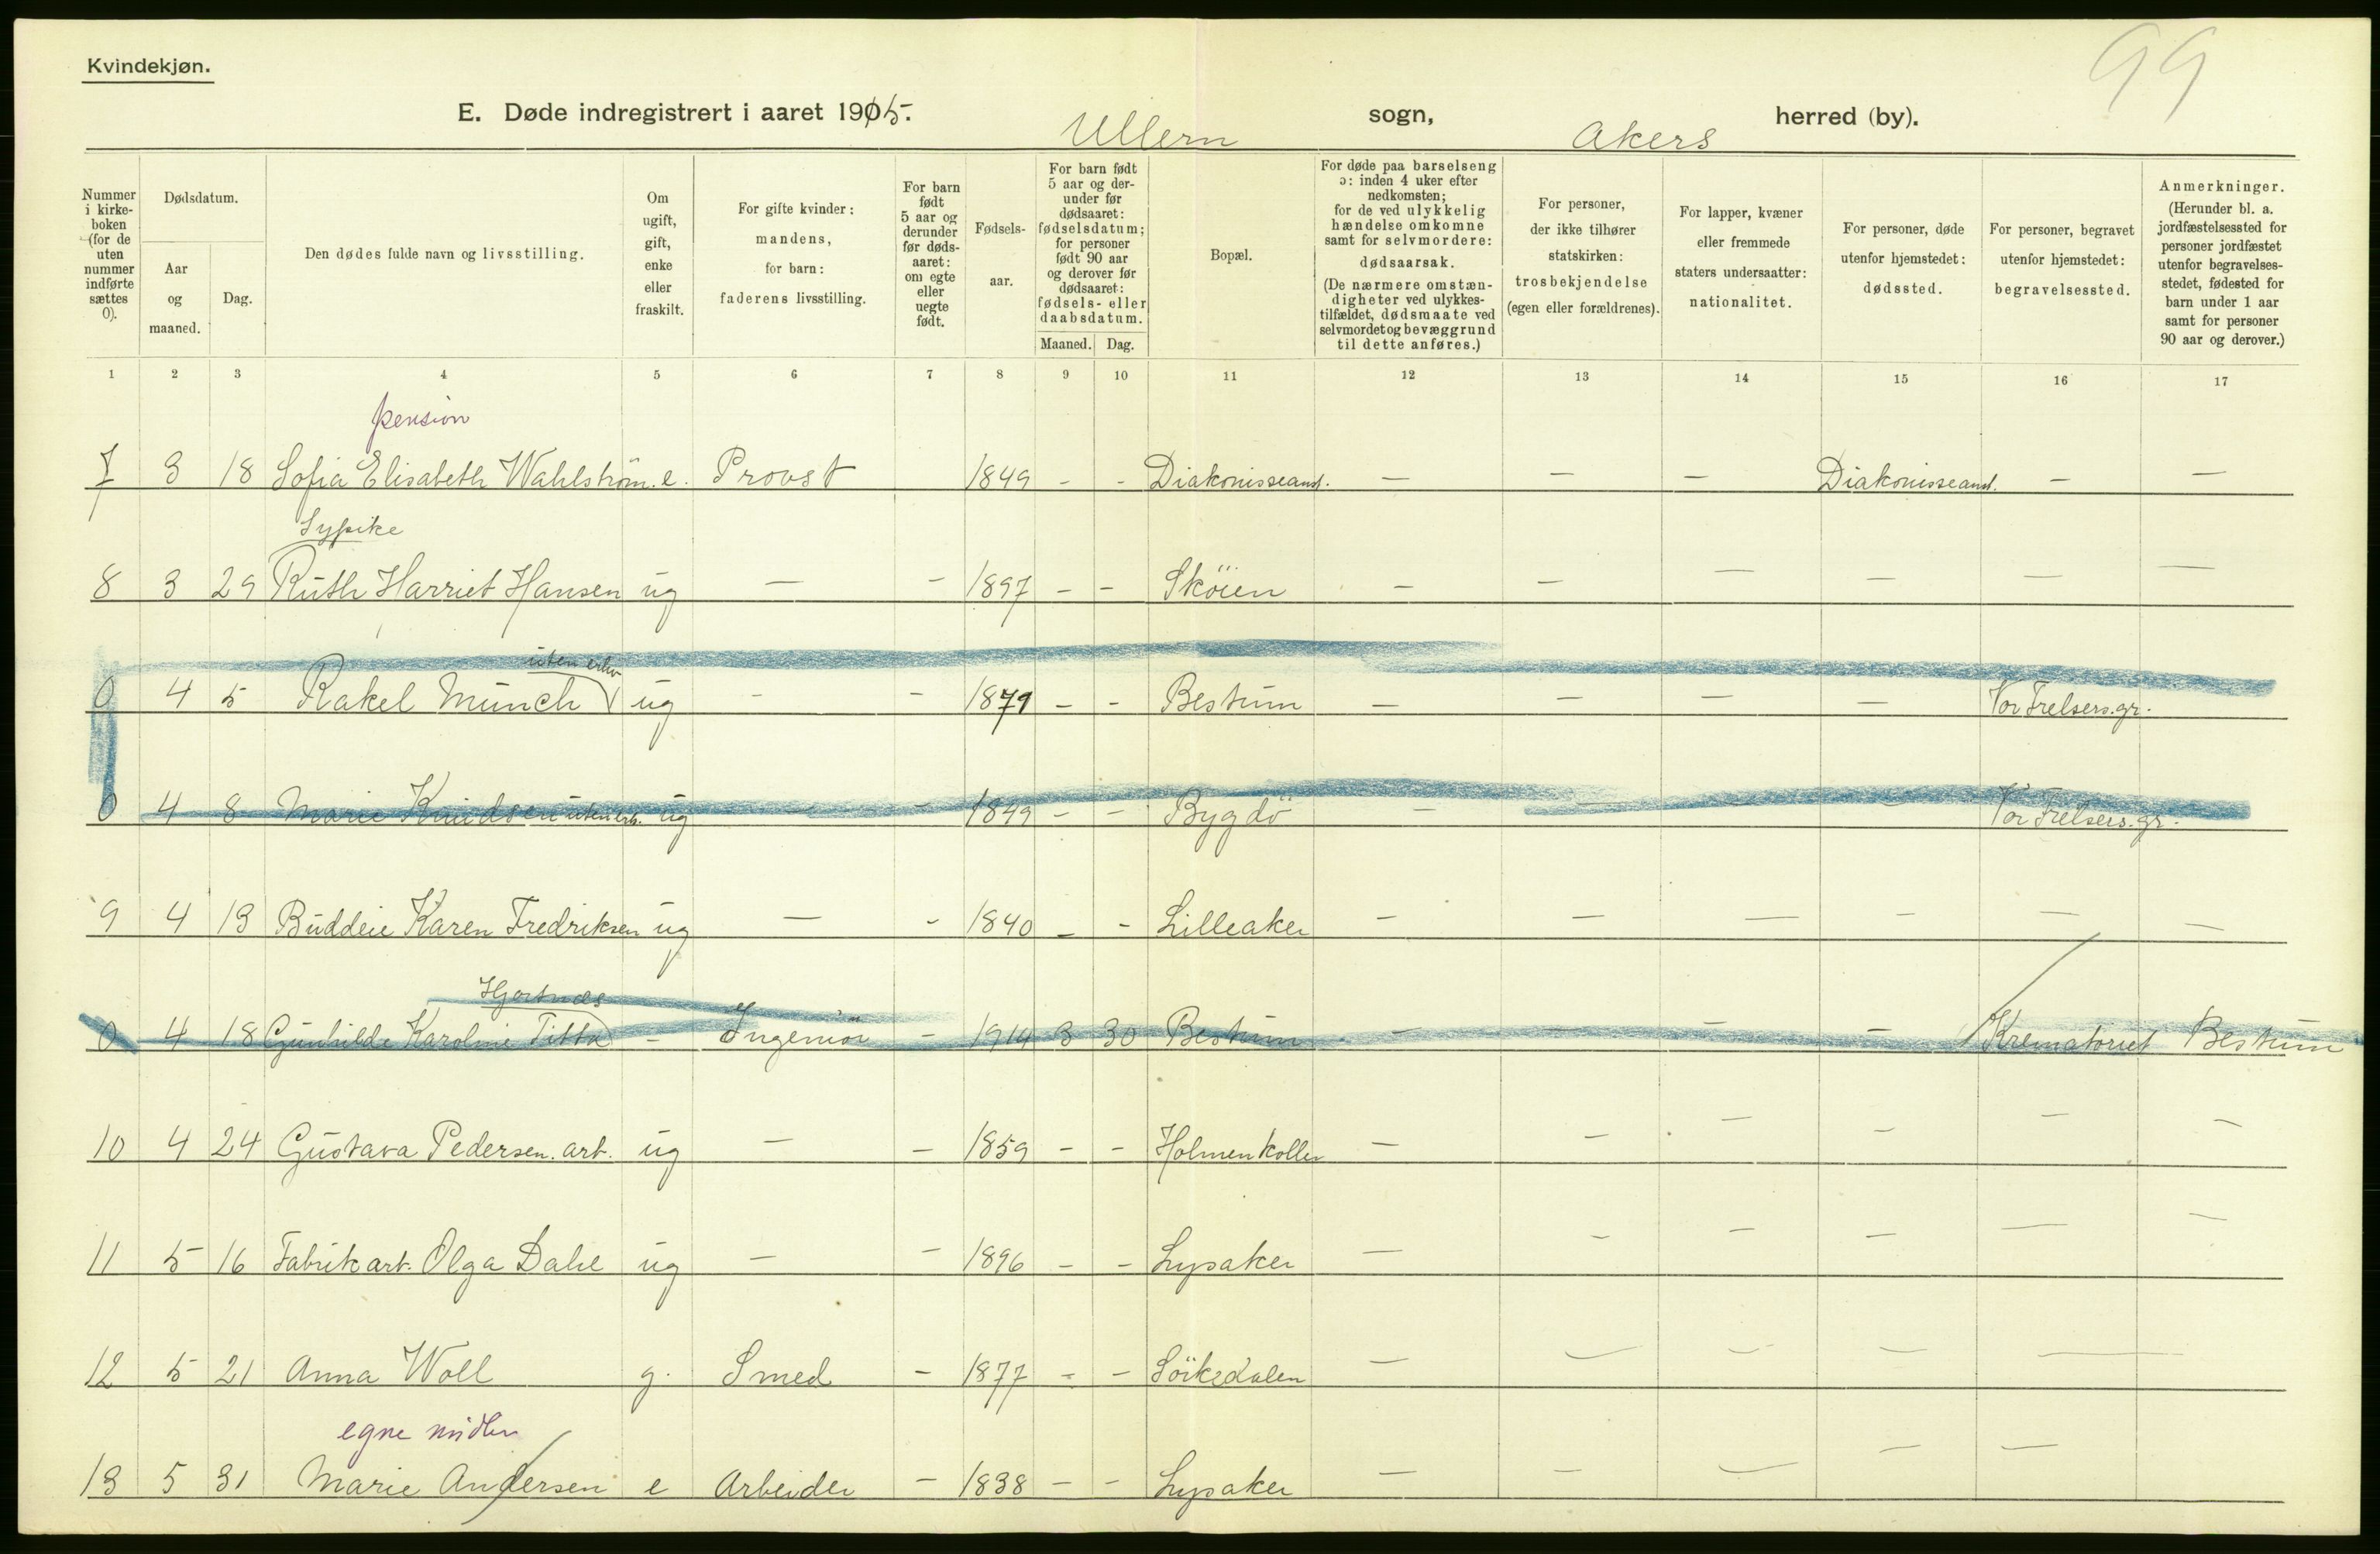 Kvindekjøn.
99
E. Døde indregistrert i aaret 1915.
Ullern sogn, Akers herred (by).
Nummer i kirkeboken (for de uten nummer indførte sættes 0).
Dødsdatum.
Aar og maaned.
Dag.
Den dødes fulde navn og livsstilling.
Om ugift, gift, enke eller fraskilt.
For gifte kvinder: mandens, for barn: faderens livsstilling.
For barn født 5 aar og derunder før dødsaaret: om egte eller uegte født.
Fødselsaar.
For barn født 5 aar og derunder før dødsaaret: fødselsdatum; for personer født 90 aar og derover før dødsaaret: fødsels- eller daabsdatum.
Maaned. Dag.
Bopæl.
For døde paa barselseng ɔ: inden 4 uker efter nedkomsten; for de ved ulykkelig hændelse omkomne samt for selvmordere: dødsaarsak. (De nærmere omstændigheter ved ulykkestilfældet, dødsmaate ved selvmordet og bevæggrund til dette anføres.)
For personer, der ikke tilhører statskirken: trosbekjendelse (egen eller forældrenes).
For lapper, kvæner eller fremmede staters undersaatter: nationalitet.
For personer, døde utenfor hjemstedet: dødssted.
For personer, begravet utenfor hjemstedet: begravelsessted.
Anmerkninger. (Herunder bl. a. jordfæstelsessted for personer jordfæstet utenfor begravelsesstedet, fødested for barn under 1 aar samt for personer 90 aar og derover.)
1 2 3 4 5 6 7 8 9 10 11 12 13 14 15 16 17
pension
7 3 18 Sofia Elisabeth Wahlström. e. Provst 1849 - - Diakonisseanst. — — — Diakonisseanst. — —
Sypike
8 3 29 Ruth Harriet Hansen ug — - 1897 - - Sköien — — — — — —
uten erhv
0 4 5 Rakel Munch ug - - 1879 - - Bestum — — — — Vor Frelsers.gr.
0 4 8 Marie Knudsen uten erh. ug - - 1849 - - Bygdö - - - - Vor Frelsers.gr.
9 4 13 Buddeie Karen Fredriksen ug — - 1840 - - Lilleaker — — — — — —
Hjortnæs
0 4 18 Gunhilde Karoline Titta - Ingeniör - 1914 3 30 Bestum — - - — Krematoriet Bestum
10 4 24 Gustava Pedersen. arb. ug — - 1859 - - Holmenkollen — — — — — —
11 5 16 Fabrikarb. Olga Dahl ug — - 1896 - - Lysaker — - - — — —
12 5 21 Anna Woll g. Smed - 1877 - - Sörkedalen — — — — —
egne midler
13 5 31 Marie Andersen e Arbeider - 1838 - - Lysaker — — — — —